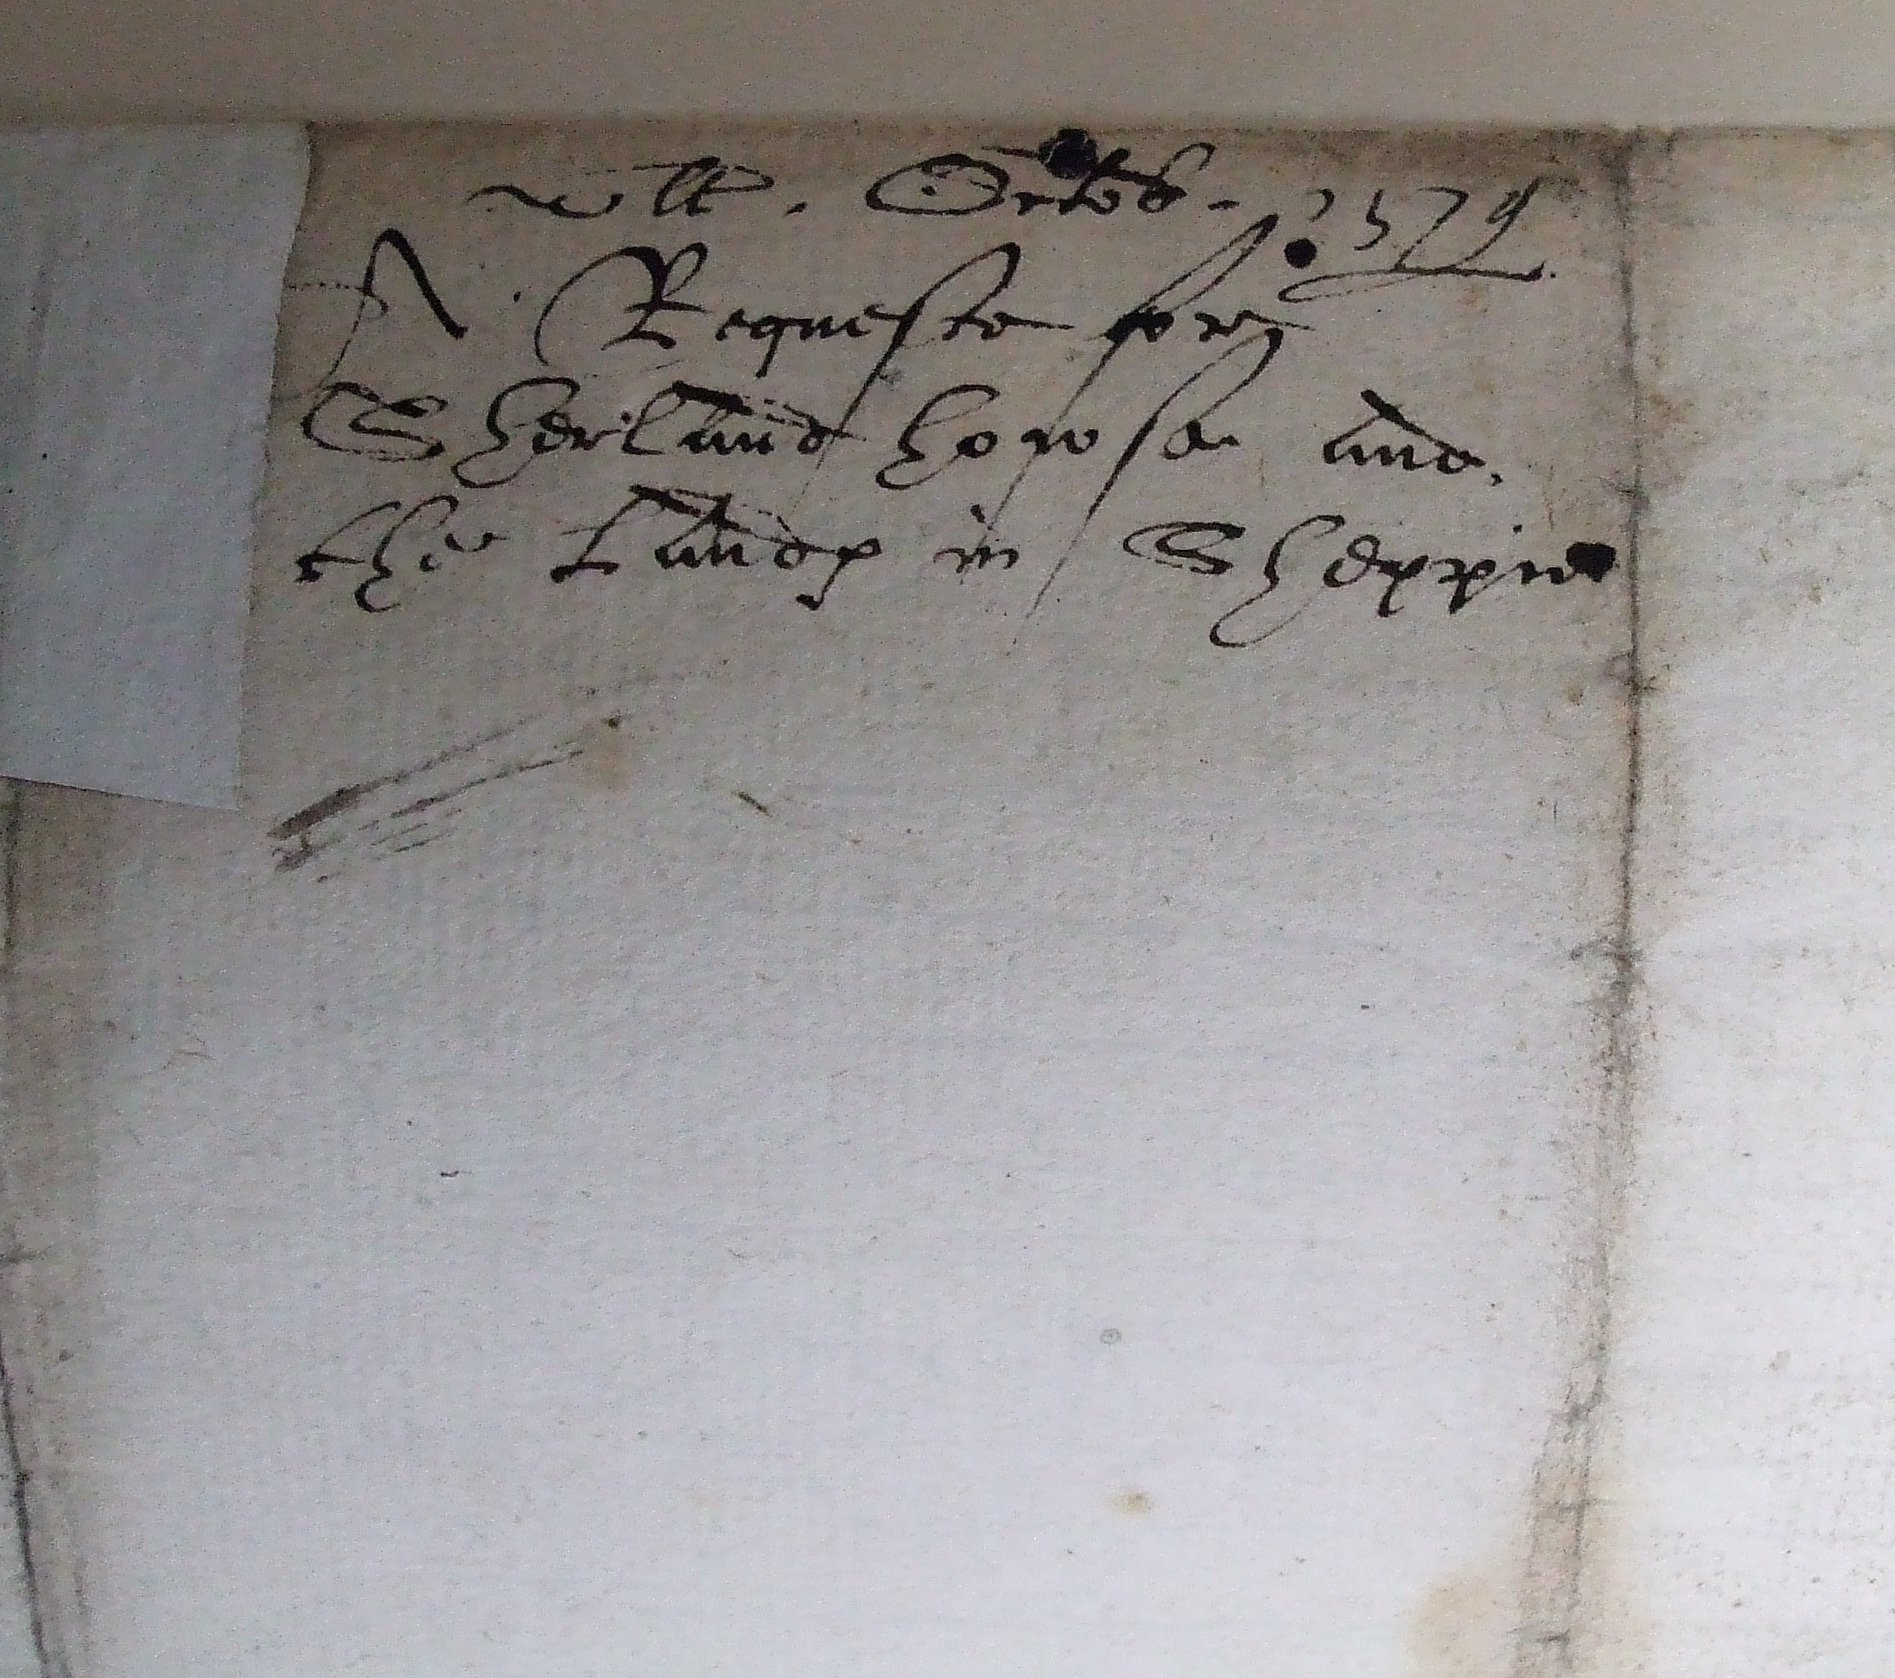 ult. Octob. 1579
A Requeste for
Sherland howse and
the Landes in Sheppie